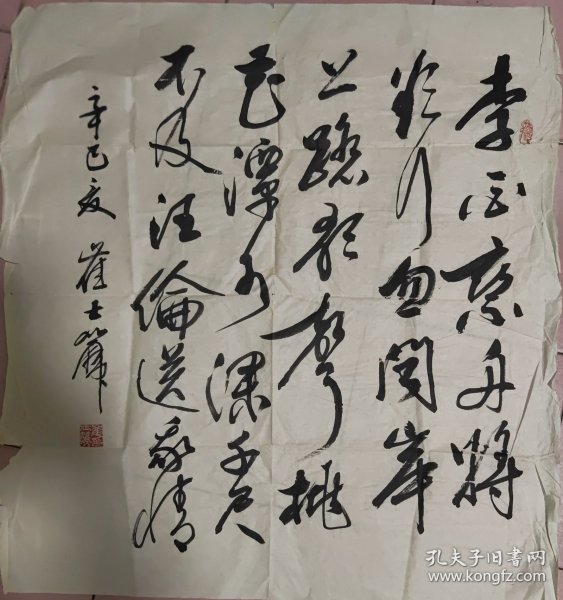 李白乘舟將
欲行忽聞岸
上踏歌聲桃
花潭水深千尺
不及汪倫送我情
辛巳夏 崔士篪
孔夫子旧书网
www.kongfz.com